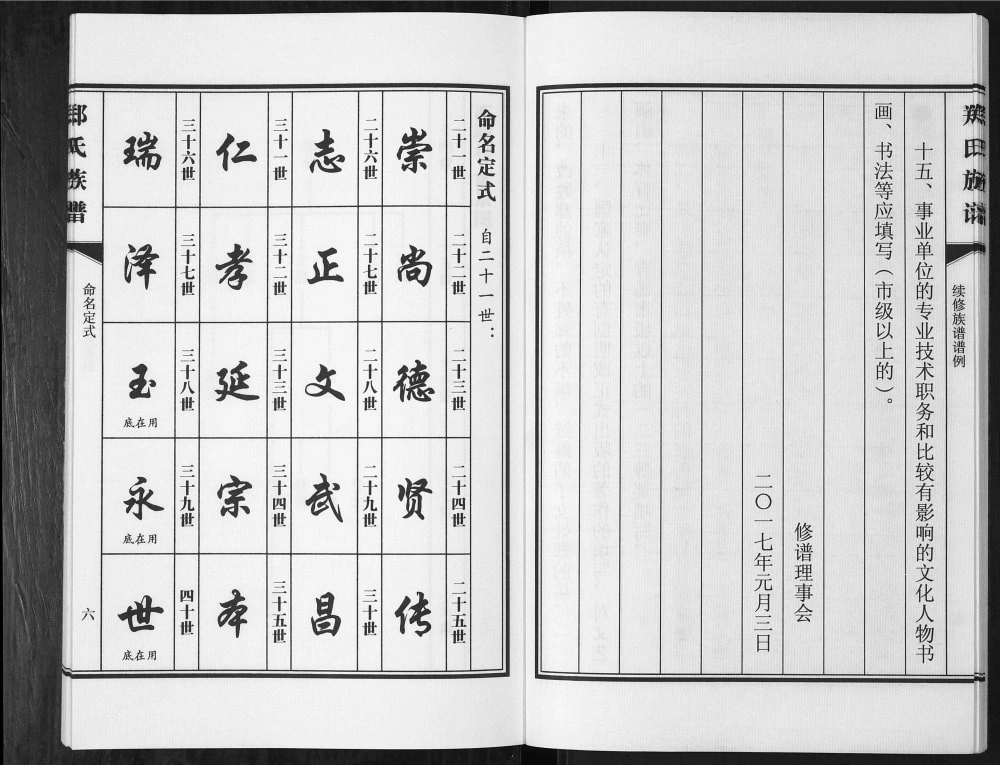 郑氏族谱
续修族谱谱例
十五、事业单位的专业技术职务和比较有影响的文化人物书
画、书法等应填写（市级以上的）。
修谱理事会
二〇一七年元月三日
命名定式 自二十一世：
二十一世 崇
二十二世 尚
二十三世 德
二十四世 贤
二十五世 传
二十六世 志
二十七世 正
二十八世 文
二十九世 武
三十世 昌
三十一世 仁
三十二世 孝
三十三世 延
三十四世 宗
三十五世 本
三十六世 瑞
三十七世 泽
三十八世 玉 底在用
三十九世 永 底在用
四十世 世 底在用
郑氏族谱
命名定式
六